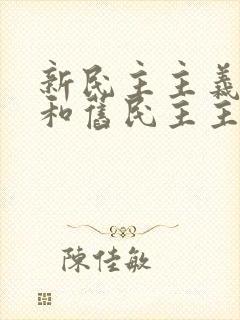 新民主主義
和舊民主主
陳佳敏